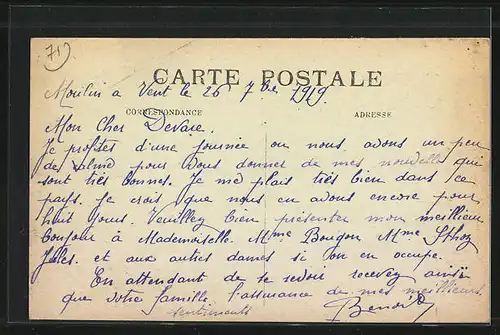 719
CARTE POSTALE
Moulin a Vent le 26 7bre 1919.
CORRESPONDANCE
ADRESSE
Mon Cher
Je profites d'une journée ou nous avons un peu
de calme pour vous donner de mes nouvelles qui
sont très bonnes. Je me plais très bien dans ce
pays. Je crois que nous en avons encore pour
huit jours. Veuillez bien présenter mon meilleur
bonjour à Mademoiselle. Mme Bougon Mme
Jules. et aux autres dames si l'on en occupe.
En attendant de se revoir recevez ainsi
que votre famille l'assurance de mes meilleurs
sentiments
Benoit